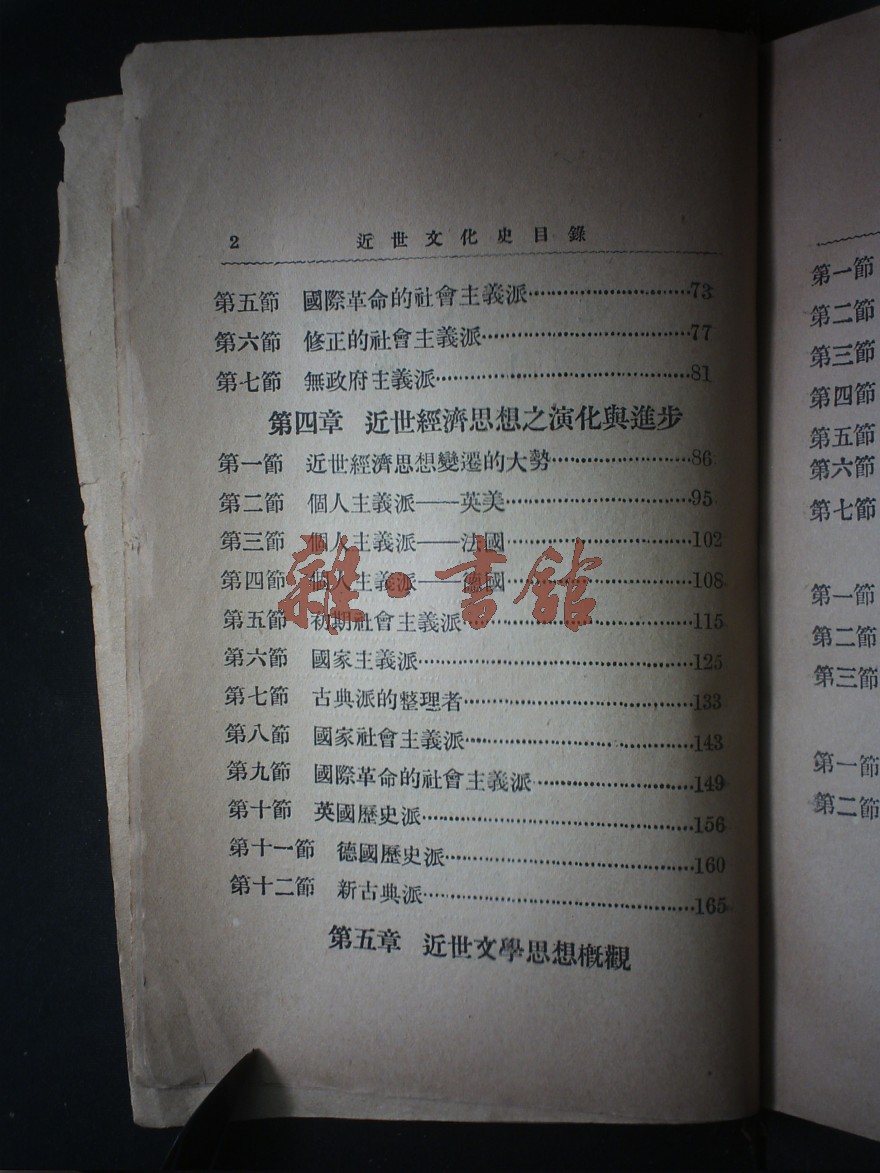 2 近世文化史目錄
第五節 國際革命的社會主義派………………73
第六節 修正的社會主義派………………77
第七節 無政府主義派………………81
第四章 近世經濟思想之演化與進步
第一節 近世經濟思想變遷的大勢………………86
第二節 個人主義派——英美………………95
第三節 個人主義派——法國………………102
第四節 個人主義派——德國………………108
第五節 初期社會主義派………………115
第六節 國家主義派………………125
第七節 古典派的整理者………………133
第八節 國家社會主義派………………143
第九節 國際革命的社會主義派………………149
第十節 英國歷史派………………156
第十一節 德國歷史派………………160
第十二節 新古典派………………165
第五章 近世文學思想概觀
雜·書館
第一節
第二節
第三節
第四節
第五節
第六節
第七節
第一節
第二節
第三節
第一節
第二節